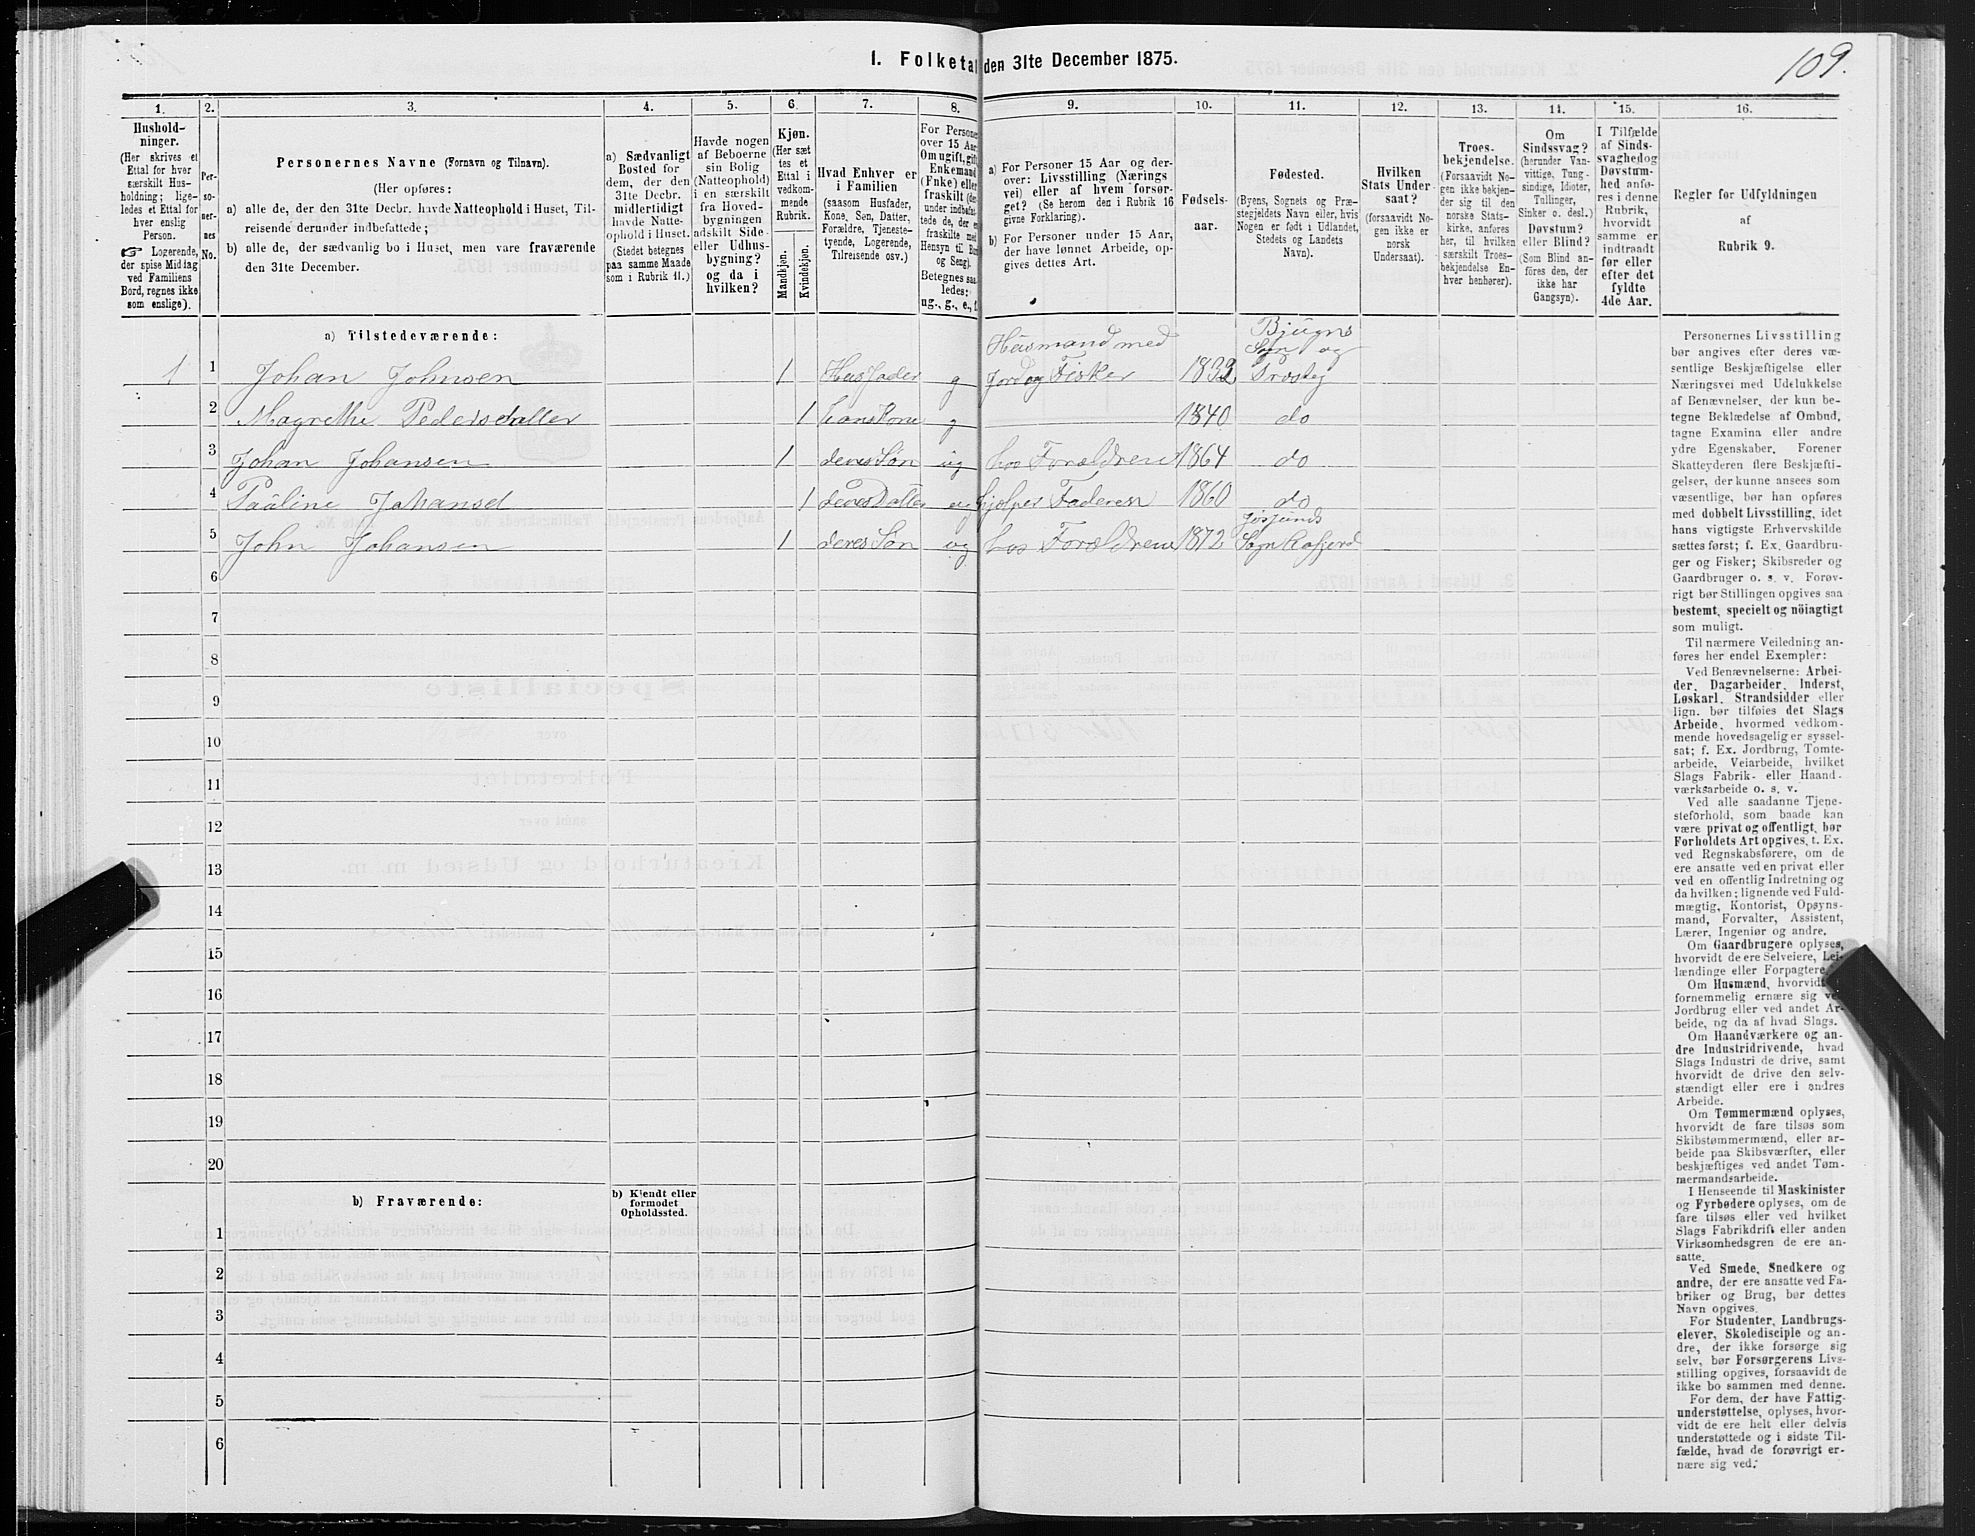 109.
1. Folketal den 31te December 1875.
1. 2. 3. 4. 5. 6. 7. 8. 9. 10. 11. 12. 13. 14. 15. 16.
Hushold-
ninger.
(Her skrives et
Ettal for hver
særskilt Hus-
holdning; lige-
ledes et Ettal for
hver enslig
Person.
☞ Logerende,
der spise Middag
ved Familiens
Bord, regnes ikke
som enslige).
Per-
so-
ner-
nes
No.
Personernes Navne (Fornavn og Tilnavn).
(Her opføres:
a) alle de, der den 31te Decbr. havde Natteophold i Huset, Til-
reisende derunder indbefattede;
b) alle de, der sædvanlig bo i Huset, men vare fraværende
den 31te December.
a) Sædvanligt
Bosted for
dem, der den
31te Decbr.
midlertidigt
havde Natte-
ophold i Huset.
(Stedet betegnes
paa samme Maade
som i Rubrik 11.)
Havde nogen
af Beboerne
sin Bolig
(Natteophold)
i en særskilt
fra Hoved-
bygningen
adskilt Side-
eller Udhus-
bygning?
og da i
hvilken?
Kjøn.
(Her sæt
tes et
Ettal i
vedkom-
mende
Rubrik.
Mandkjøn.
Kvindekjøn.
Hvad Enhver er
i Familien
(saasom Husfader,
Kone, Søn, Datter,
Forældre, Tjeneste-
tyende, Logerende,
Tilreisende osv.)
For Personer
over 15 Aar:
Om ugift, gift,
Enkemand
(Enke) eller
fraskilt (der-
under indbefat-
tede de, der er
fraskilte med
Hensyn til Bord
og Seng).
Betegnes saa-
ledes:
ug., g., e., f.
a) For Personer 15 Aar og der-
over: Livsstilling (Nærings
vei) eller af hvem forsør-
get? (Se herom den i Rubrik 16
givne Forklaring).
b) For Personer under 15 Aar,
der have lønnet Arbeide, op-
gives dettes Art.
Fødsels-
aar.
Fødested.
(Byens, Sognets og Præ-
stegjeldets Navn eller, hvis
Nogen er født i Udlandet,
Stedets og Landets
Navn).
Hvilken
Stats Under-
saat?
(forsaavidt No-
gen ikke er
norsk
Undersaat).
Troes-
bekjendelse.
(Forsaavidt No-
gen ikke bekjen-
der sig til den
norske Stats-
kirke, anføres
her, til hvilken
særskilt Troes-
bekjendelse En-
hver henhører).
Om
Sindssvag?
(herunder Van-
vittige, Tung-
sindige, Idioter,
Tullinger,
Sinker o. desl.)
Døvstum?
eller Blind?
(Som Blind an-
føres den, der
ikke har
Gangsyn).
I Tilfælde
af Sinds-
svaghed og
Døvstum-
hed anfø-
res i denne
Rubrik,
hvorvidt
samme er
indtraadt
før eller
efter det
fyldte
4de Aar.
Regler før Udfyldningen
af
Rubrik 9.
a) Tilstedeværende:
1 1 Johan Johnsen 1 Husfader g Husmand med Jord og Fisker 1832 Bjugns Sogn og Prestegj
2 Magrethe Pedersdatter 1 hans Kone g 1840 do
3 Johan Johansen 1 deres Søn ug hos Forældrene 1864 do
4 Pauline Johansd 1 deres Datter ug hjelper Faderen 1860 do
5 John Johansen 1 deres Søn ug hos Forældrene 1872 Jøssunds Sogn Aafjord
6
7
8
9
10
11
12
13
14
15
16
17
18
19
20
b) Fraværende:
b) Kjendt eller
formodet
Opholdssted.
1
2
3
4
5
6
Personernes Livsstilling
bør angives efter deres væ-
sentlige Beskjæftigelse eller
Næringsvei med Udelukkelse
af Benævnelser, der kun be-
tegne Beklædelse af Ombud,
tagne Examina eller andre
ydre Egenskaber. Forener
Skatteyderen flere Beskjæfti-
gelser, der kunne ansees som
væsentlige, bør han opføres
med dobbelt Livsstilling, idet
hans vigtigste Erhvervskilde
sættes først; f. Ex. Gaardbru-
ger og Fisker; Skibsreder og
Gaardbruger o. s. v. Forøv-
rigt bør Stillingen opgives saa
bestemt, specielt og nöiagtigt
som muligt.
Til nærmere Veiledning an-
føres her endel Exempler:
Ved Benævnelserne: Arbei-
der, Dagarbeider, Inderst,
Løskarl, Strandsidder eller
lign. bør tilføies det Slags
Arbeide, hvormed vedkom-
mende hovedsagelig er syssel-
sat; f. Ex. Jordbrug, Tomte-
arbeide, Veiarbeide, hvilket
Slags Fabrik- eller Haand-
værksarbeide o. s. v.
Ved alle saadanne Tjene-
steforhold, som baade kan
være privat og offentligt, bør
Forholdets Art opgives, t. Ex.
ved Regnskabsførere, om de
ere ansatte ved en privat eller
ved en offentlig Indretning og
da hvilken; lignende ved Fuld-
mægtig, Kontorist, Opsyns-
mand, Forvalter, Assistent,
Lærer, Ingeniør og andre.
Om Gaardbrugere oplyses,
hvorvidt de ere Selveiere, Lei-
lændinge eller Forpagtere.
Om Husmænd, hvorvidt
fornemmelig ernære sig ved
Jordbrug eller ved andet Ar-
beide, og da af hvad Slags.
Om Haandværkere og an-
dre Industridrivende, hvad
Slags Industri de drive, samt
hvorvidt de drive den selv-
stændigt eller ere i andres
Arbeide.
Om Tømmermænd oplyses,
hvorvidt de fare tilsøs som
Skibstømmermænd, eller ar-
beide paa Skibsværfter, eller
beskjæftiges ved andet Tøm-
mermandsarbeide.
I Henseende til Maskinister
og Fyrbødere oplyses, om de
fare tilsøs eller ved hvilket
Slags Fabrikdrift eller anden
Virksomhedsgren de ere an-
satte.
Ved Smede, Snedkere og
andre, der ere ansatte ved Fa-
briker og Brug, bør dettes
Navn opgives.
For Studenter, Landbrugs-
elever, Skoledisciple og an-
dre, der ikke forsørge sig
selv, bør Forsørgerens Livs-
stilling opgives, forsaavidt de
ikke bo sammen med denne.
For dem, der have Fattig-
understøttelse, oplyses, hvor-
vidt de ere helt eller delvis
understøttede og i sidste Til-
fælde, hvad de forøvrigt er-
nære sig ved.